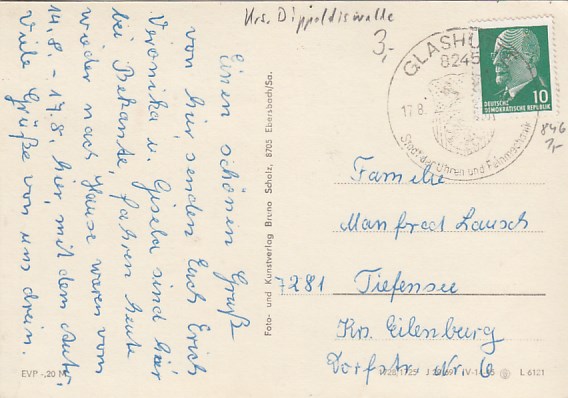 Krs. Dippoldiswalde
3,-
GLASHÜ
8245
17.8.
Stadt der Uhren und Feinmechanik
DEUTSCHE
DEMOKRATISCHE REPUBLIK
10
846
7,-
Einen schönen Gruß
von hier senden Euch Erich
Veronika u. Gisela sind hier
bei Bekante, fahren heute
wieder nach Hause waren vom
14.8. - 17.8. hier, mit dem Auto,
Viele Grüße von uns drein.
Foto- und Kunstverlag Bruno Scholz, 8705 Ebersbach/Sa.
Familie
Manfred Lausch
7281 Tiefensee
Krs. Eilenburg
Dorfstr. Nr. 6
EVP -,20 M
L 6121